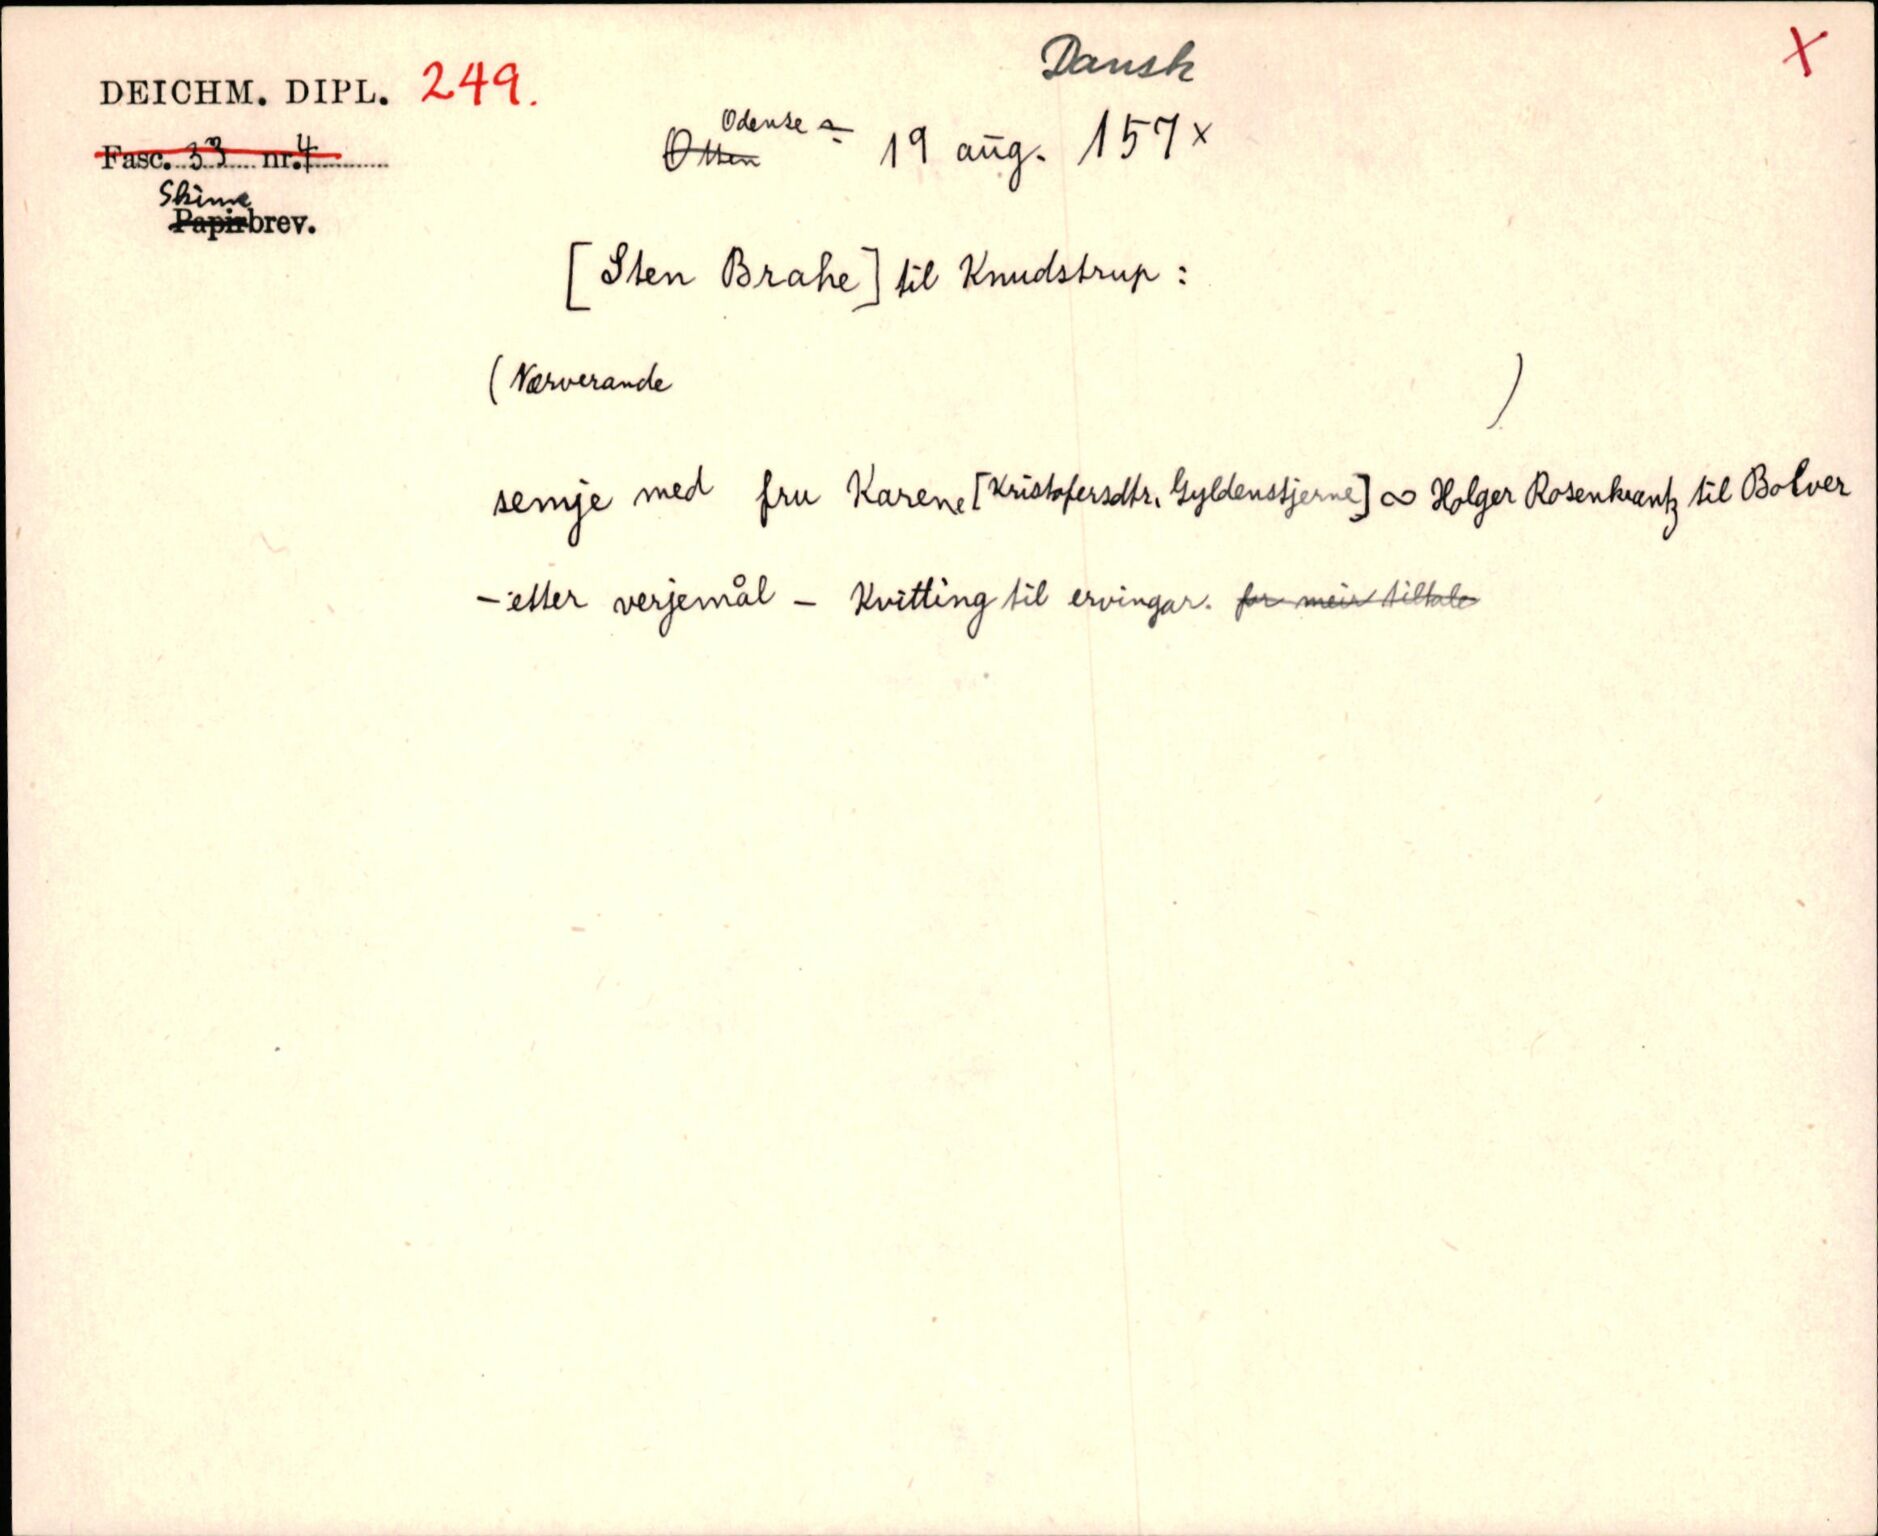 Dansk X
DEICHM. DIPL. 249.
Odense
Otten 19 aug. 157x
Fasc. 33 nr. 4
Skinn
Papirbrev.
[Sten Brahe] til Knudstrup :
(Nærverande )
semje med fru Karene [Kristofersdtr. Gyldenstjerne] ∞ Holger Rosenkrantz til Bolver
- etter verjemål - Kvitting til ervingar. for meir tiltale